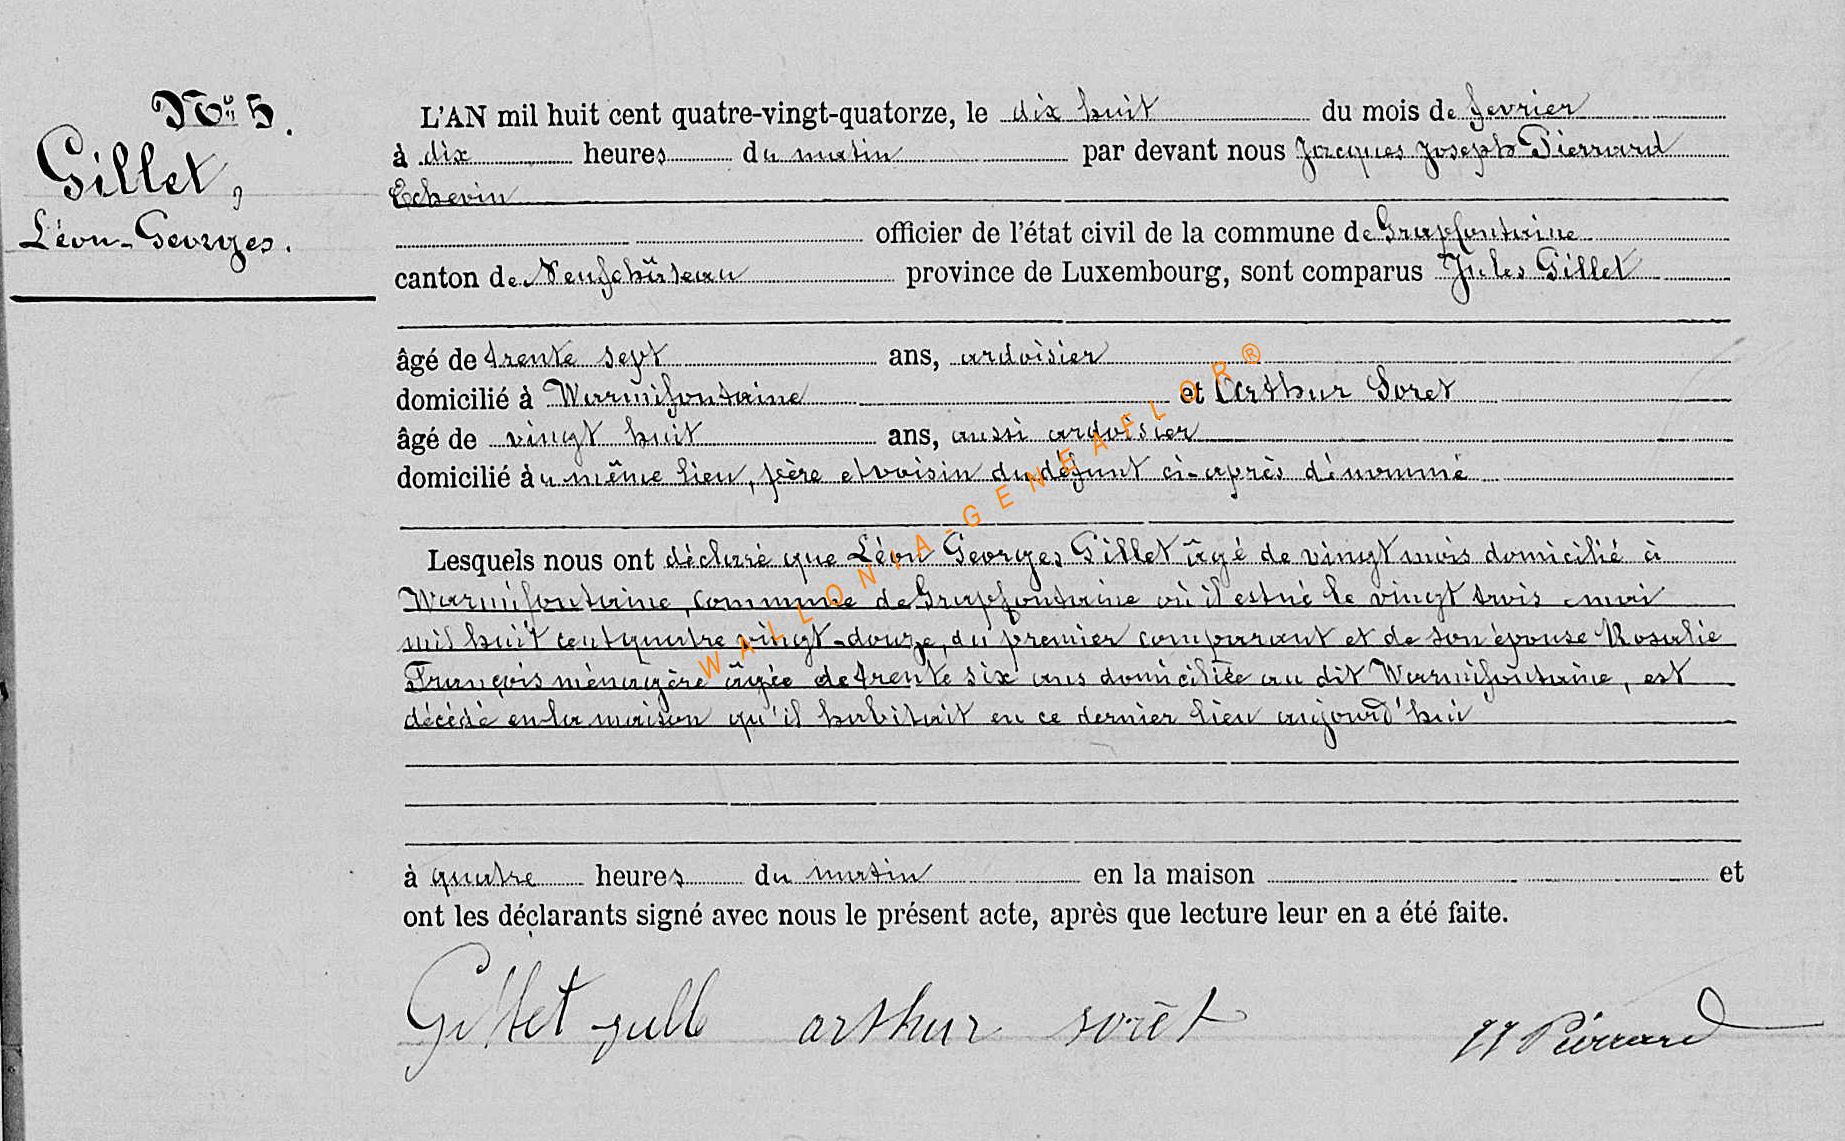 No. 5.
Gillet,
Léon-Georges.
L'AN mil huit cent quatre-vingt-quatorze, le dix huit du mois de fevrier
à dix heures du matin par devant nous Jacques Joseph Pierrard
Echevin
officier de l'état civil de la commune de Grapfontaine
canton de Neufchâteau province de Luxembourg, sont comparus Jules Gillet
âgé de trente sept ans, ardoisier
domicilié à Warmifontaine et Arthur Soret
âgé de vingt huit ans, aussi ardoisier
domicilié àu même lieu, père et voisin du défunt ci-après dénommé
Lesquels nous ont déclaré que Léon Georges Gillet âgé de vingt mois domicilié à
Warmifontaine, commune de Grapfontaine où il est né le vingt trois mai
mil huit cent quatre vingt-douze, du premier comparant et de son épouse Rosalie
François ménagère âgée de trente six ans domiciliée au dit Warmifontaine, est
décédé en la maison qu'il habitait en ce dernier lieu aujourd'hui
à quatre heures du matin en la maison et
ont les déclarants signé avec nous le présent acte, après que lecture leur en a été faite.
Gillet arthur sorèt JJ Pierrard
WALLONIA-GENEAFLOR®